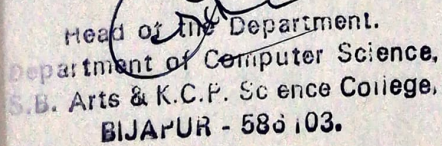 Head of the Department.
Department of Computer Science,
S.B. Arts & K.C.P. Science College,
BIJAPUR - 586103.